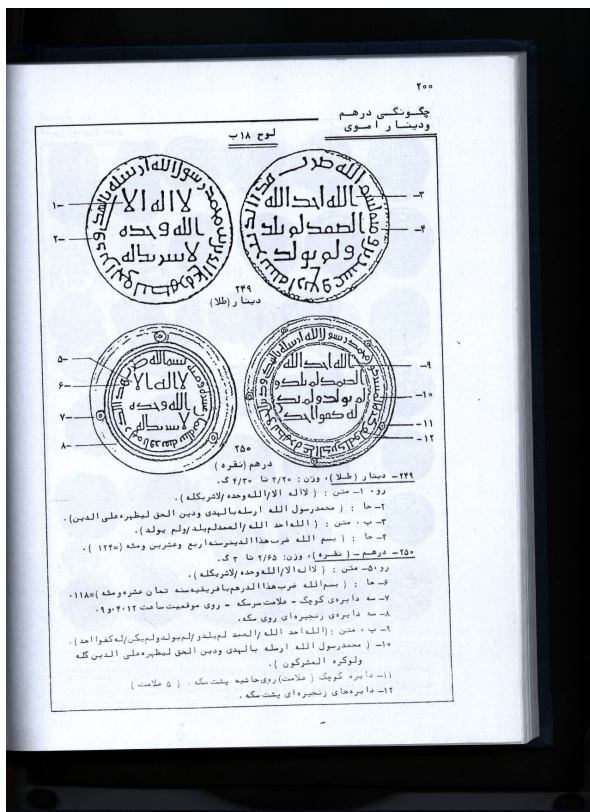 ۲۰۰
چگونگی درهم
ودینار اموی
لوح ۱۸ب
۱-
۲-
۳-
۴-
لا اله الا
الله وحده
لا شریک له
الله احد الله
الصمد لم یلد
و لم یولد
۲۴۹
دینار (طلا)
۵-
۶-
۷-
۸-
۹-
۱۰-
۱۱-
۱۲-
لا اله الا
الله وحده
لا شریک له
الله احد الله
الصمد لم یلد و
لم یولد ولم یکن
له کفوا احد
۲۵۰
درهم (نقره)
۲۴۹- دینار (طلا)، وزن: ۲/۲۰ تا ۴/۲۰ گ.
رو، ۱- متن : ( لااله الا/الله وحده/لاشریکله ).
۲- حا : ( محمدرسول الله ارسله بالهدی ودین الحق لیظهره علی الدین).
۳- پ ، متن : (الله احد الله /الصمدلم یلد/ولم یولد).
۴- حا : ( بسم الله ضرب هذا الدینر سنه اربع وعشرین ومئه (=۱۲۴ ).
۲۵۰- درهم - ( نقره )، وزن: ۲/۶۵ تا ۳ گ.
رو، ۵- متن : ( لااله الا/الله وحده /لاشریکله ).
۶- حا : ( بسم الله ضرب هذا الدرهم بافریقیه سنه ثمان عشره ومئه )=۱۱۸.
۷- سه دایره‌ی کوچک - علامت سرسکه - روی موقعیت ساعت ۰۴،۱۲ و ۰۹.
۸- سه دایره‌ی زنجیره‌ای روی سکه.
۹- پ ، متن : (الله احد الله /الصمد لم یلد و/لم یولد ولم یکن/له کفوا احد).
۱۰- ( محمدرسول الله ارسله بالهدی ودین الحق لیظهره علی الدین کله
ولوکره المشرکون ).
۱۱- دایره کوچک ( علامت) روی حاشیه پشت سکه . ( ۵ علامت )
۱۲- دایره‌های زنجیره‌ای پشت سکه .